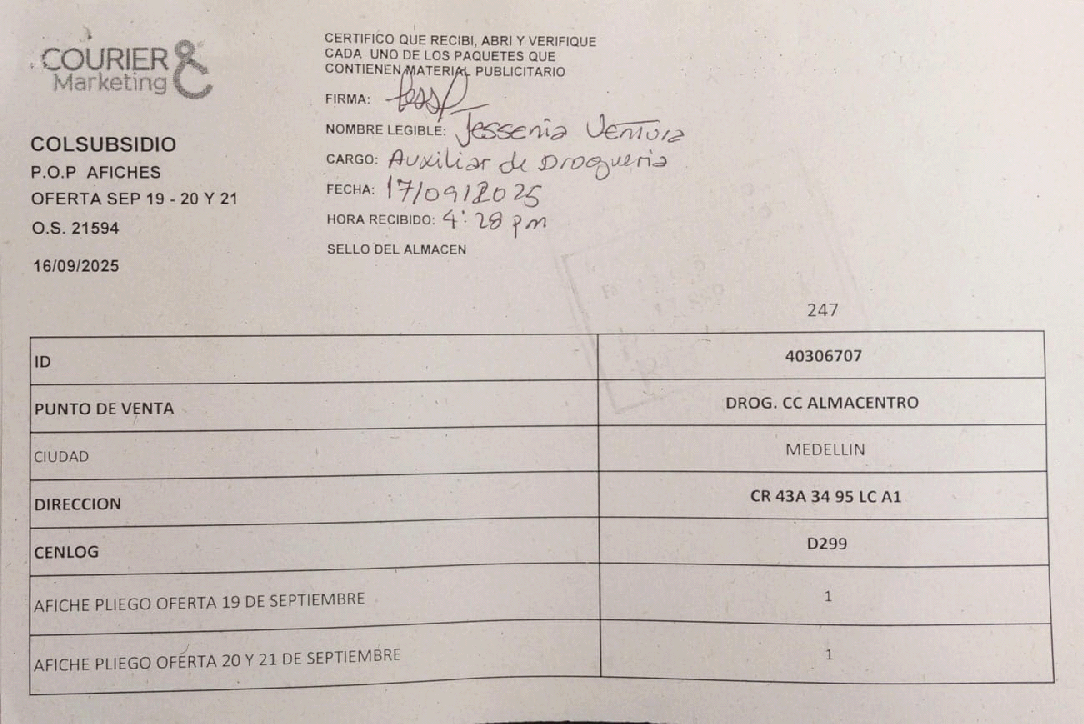 COURIER &
Marketing
COLSUBSIDIO
P.O.P AFICHES
OFERTA SEP 19 - 20 Y 21
O.S. 21594
16/09/2025
CERTIFICO QUE RECIBI, ABRI Y VERIFIQUE
CADA UNO DE LOS PAQUETES QUE
CONTIENEN MATERIAL PUBLICITARIO
FIRMA:
NOMBRE LEGIBLE: Jessenia Ventura
CARGO: Auxiliar de Drogueria
FECHA: 17/09/2025
HORA RECIBIDO: 4:28 pm
SELLO DEL ALMACEN
247
ID 40306707
PUNTO DE VENTA DROG. CC ALMACENTRO
CIUDAD MEDELLIN
DIRECCION CR 43A 34 95 LC A1
CENLOG D299
AFICHE PLIEGO OFERTA 19 DE SEPTIEMBRE 1
AFICHE PLIEGO OFERTA 20 Y 21 DE SEPTIEMBRE 1